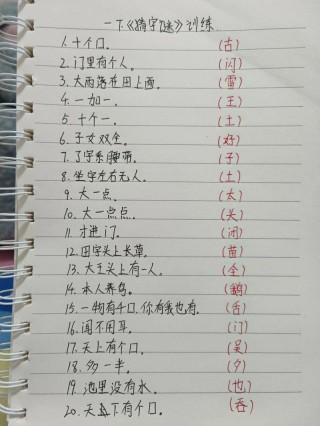 一下《猜字谜》训练
1. 十个口。 (古)
2. 门里有个人。 (闪)
3. 大雨落在田上面。 (雷)
4. 一加一。 (王)
5. 十个一。 (土)
6. 子女双全。 (好)
7. 了字系腰带。 (子)
8. 坐字左右无人。 (土)
9. 大一点。 (太)
10. 大一点点。 (头)
11. 才进门。 (闭)
12. 田字头上长草。 (苗)
13. 大王头上有一人。 (全)
14. 本人养鸟。 (鹅)
15. 一物有千口,你有我也有。 (舌)
16. 闻不用耳。 (门)
17. 天上有个口。 (吴)
18. 多一半。 (夕)
19. 池里没有水。 (也)
20. 天下有个口。 (吞)